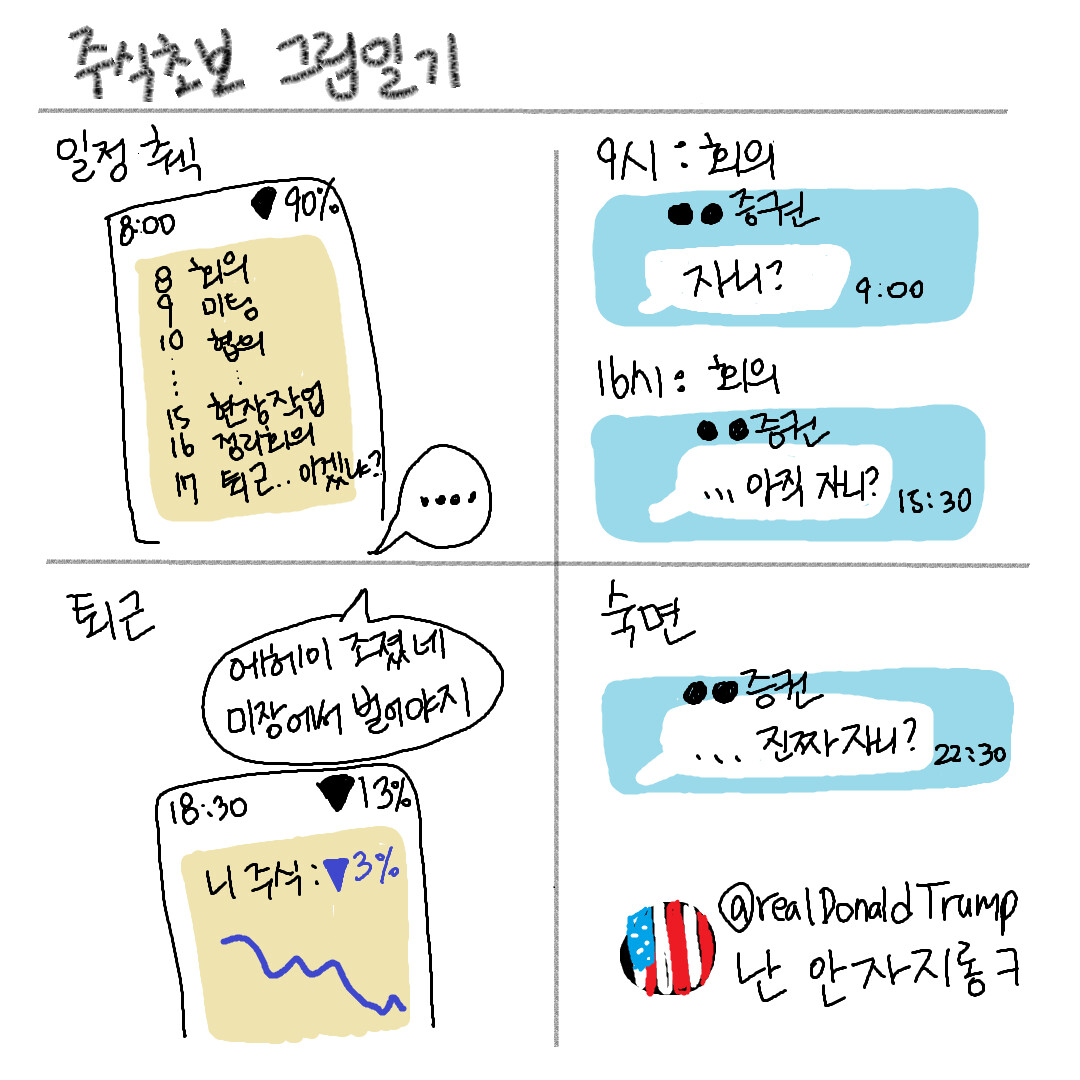 주식초보 그림일기
일정 추식
8:00
90%
8 회의
9 미팅
10 협의
15 현장작업
16 정리회의
17 퇴근.. 이겠냐?
....
9시 : 회의
●●증권
자니?
9:00
16시: 회의
●●증권
... 아직 자니?
15:30
퇴근
에헤이 조졌네
미장에서 벌어야지
18:30
▼13%
니 주식:▼3%
숙면
●●증권
... 진짜자니?
22:30
@realDonaldTrump
난 안자지롱ㅋ